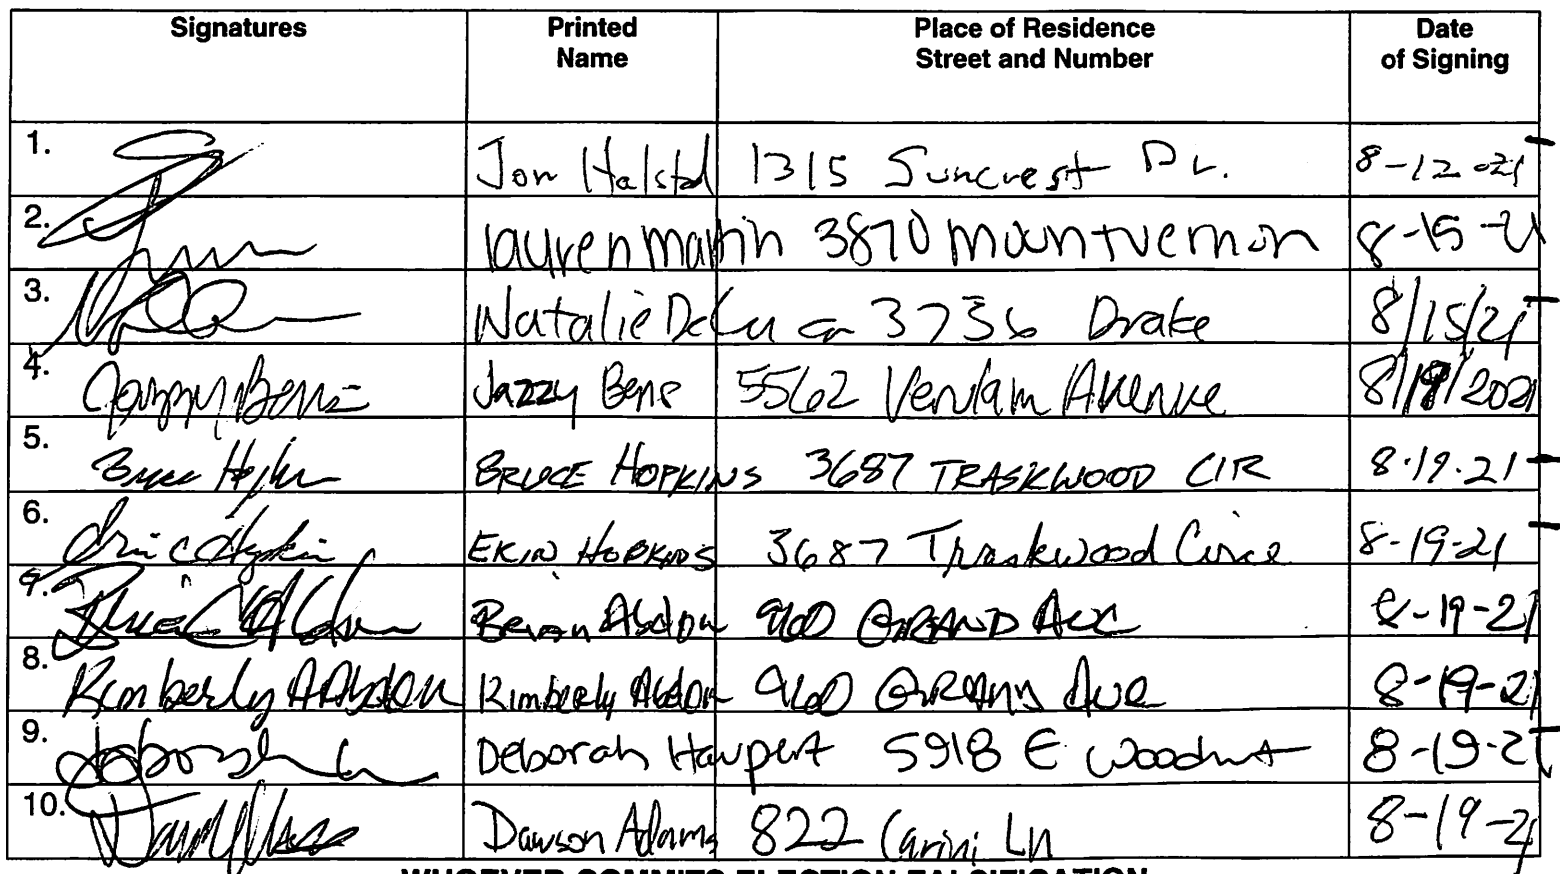 Signatures Printed Name Place of Residence Street and Number Date of Signing
1. Jon Halstd 1315 Suncrest Dr. 8-12-021
2. lauren martin 3870 mountvernon 8-15-21
3. Natalie 3736 Drake 8/15/21
4. Jazzy Benz Jazzy Bens 5562 Verulam Avenue 8/19/2021
5. Bruce Hopkins BRUCE HOPKINS 3687 TRASKWOOD CIR 8-19-21
6. ERIN HOPKINS 3687 Traskwood Circe 8-19-21
7. Brian Abdon 960 GRAND AVE 8-19-21
8. Kimberly A Abdon Kimberly Abdon 960 GRAND Ave 8-19-21
9. Deborah Haupert 5918 E Woodmont 8-19-21
10. Dawson Adams 822 Carini Ln 8-19-21
WHOEVER COMMITS ELECTION FALSIFICATION